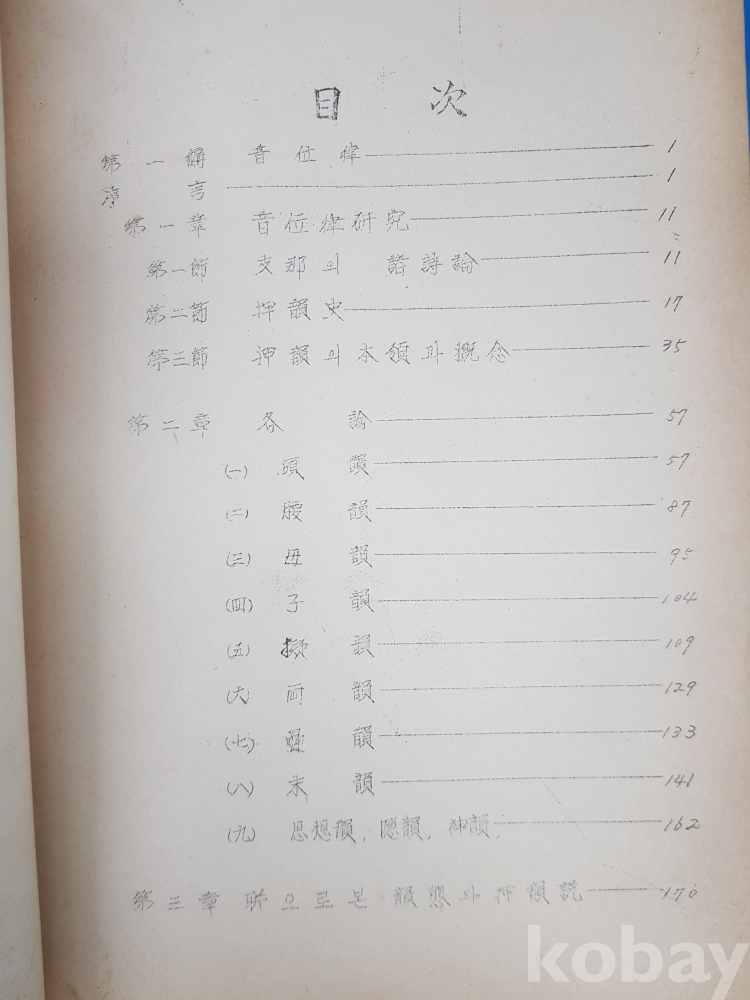 目 次
第一講 音位律 1
序言 1
第一章 音位律研究 11
第一節 支那의 諸詩論 11
第二節 押韻史 17
第三節 押韻의 本領과 槪念 35
第二章 各論 57
(一) 頭韻 57
(二) 腰韻 87
(三) 母韻 95
(四) 子韻 104
(五) 擬韻 109
(六) 両韻 129
(七) 疊韻 133
(八) 末韻 141
(九) 思想韻, 隱韻, 神韻. 162
第三章 聯으로본 韻態와 押韻 170
kobay